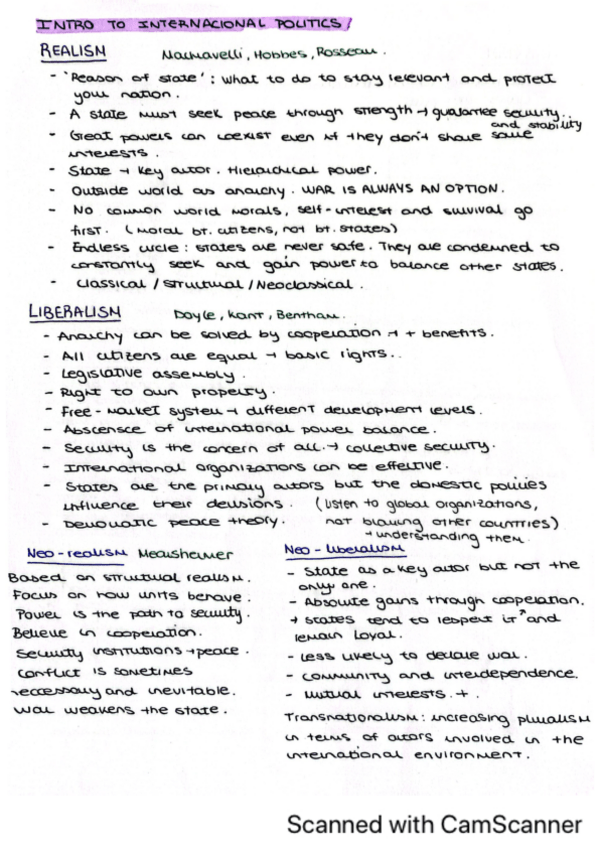 INTRO TO INTERNACIONAL POLITICS/
REALISM Machiavelli, Hobbes, Rosseau.
- 'Reason of state': what to do to stay relevant and protect
your nation.
- A state must seek peace through strength → guarantee security..
and stability
- Great powers can coexist even if they don't share same
interests.
- State → key actor. Hierarchical power.
- Outside world as anarchy. WAR IS ALWAYS AN OPTION.
- No common world morals, self-interest and survival go
first. (Moral bt. citizens, not bt. states)
- Endless circle: states are never safe. They are condemned to
constantly seek and gain power to balance other states.
- Classical / Structural / Neoclassical.
LIBERALISM Doyle, Kant, Bentham.
- Anarchy can be solved by cooperation → + benefits.
- All citizens are equal → basic rights..
- Legislative assembly.
- Right to own property.
- Free-market system → different development levels.
- Abscensce of international power balance.
- Security is the concern of all. → collective security.
- International organizations can be effective.
- States are the primary actors but the domestic policies
influence their decisions. (listen to global organizations,
- Democratic peace theory. not blaming other countries)
→ understanding them.
Neo-realism Mearsheimer
Based on structural realism.
Focus on how units behave.
Power is the path to security.
Believe in cooperation.
Security institutions → peace.
Conflict is sometimes
necessary and inevitable.
War weakens the state.
Neo-liberalism
- State as a key actor but not the
only one.
- Absolute gains through cooperation.
→ states tend to respect it and
remain loyal.
- Less likely to declare war.
- Community and interdependence.
- Mutual interests. +.
Transnationalism: increasing pluralism
in terms of actors involved in the
international environment.
Scanned with CamScanner